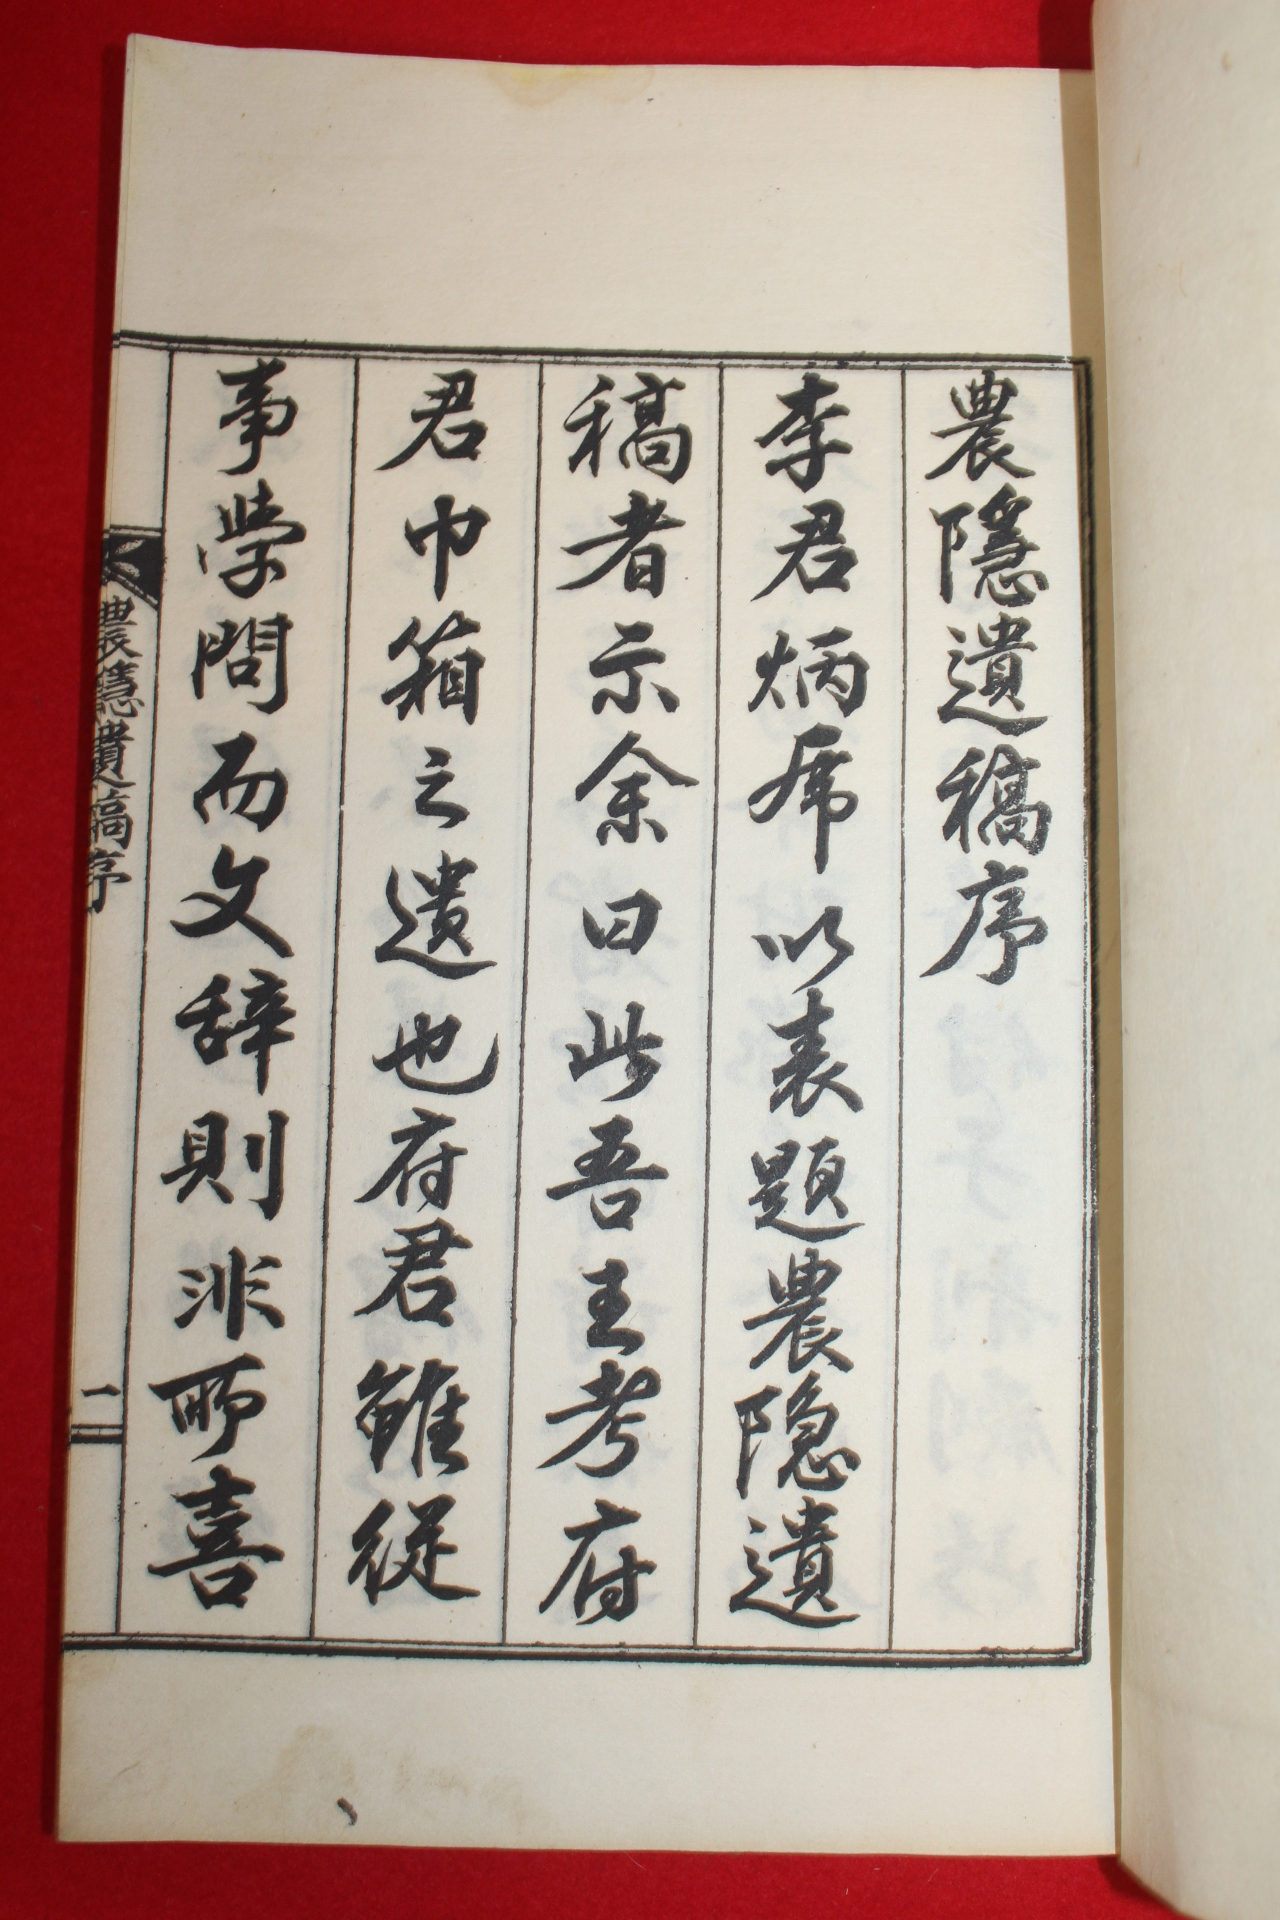 農隱遺稿序
李君炳席以表題農隱遺
稿者示余曰此吾王考府
君巾箱之遺也府君雖從
事學問而文辭則非所喜
農隱遺稿序
一